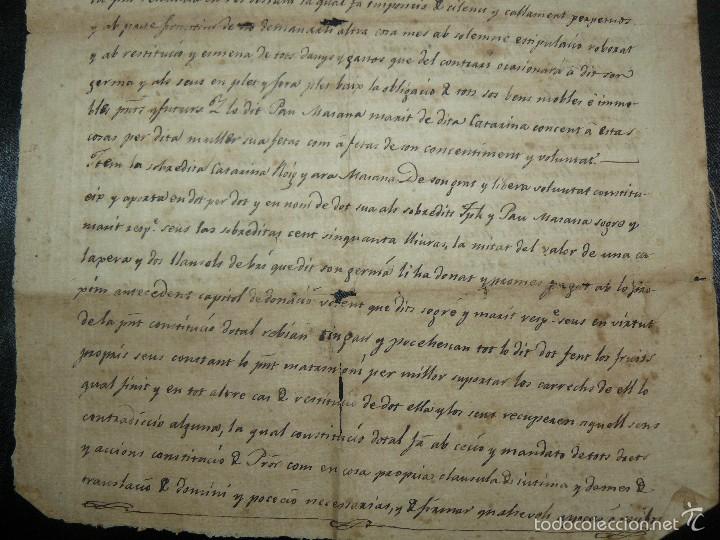 la qual fa imposició de silenci y callament perpetuos
y ab pacte de no demanar altra cosa mes ab solemne estipulació roborat
y ab restitució y esmena de tots danys y gastos que del contrari ocasionará á dit son
germá y als seus en ples y fora ples baix la obligació de tots sos bens mobles é immo-
bles pnts y futurs lo dit Pau Marana marit de dita Catarina concent á estas
cosas per dita muller sua fetas com á fetas de son concentiment y voluntat.
Ittem la sobredita Catarina Roig y ara Marana De son grat y libera voluntat constitu-
eix y aporta en dot per dot y en nom de dot sua als sobredits Jph y Pau Marana sogre y
marit respe. seus las sobreditas cent sinquanta lliuras, la mitat del valor de una ca-
laxera y dos llansols de bri que dit son germá li ha donat y promes pagar ab lo pro-
pim antecedent capitol de donació volent que dits sogre y marit respe. seus en virtut
de la pnt constitució dotal rebian tingan y pocehescan tot lo dit dot fent los fruits
propris seus constant lo pnt matrimoni per millor suportar los carrechs de ell lo
qual finit y en tot altre cas de restitució de dot ella y los seus recuperen aquell sens
contradicció alguna, la qual constitució dotal fa ab cecio y mandato de tots drets
y accions constitució de Pror com en cosa propria, clausula de intima y demes de
translació de domini y poceció necessarias, y de firmar qualsevols
todocoleccion.net